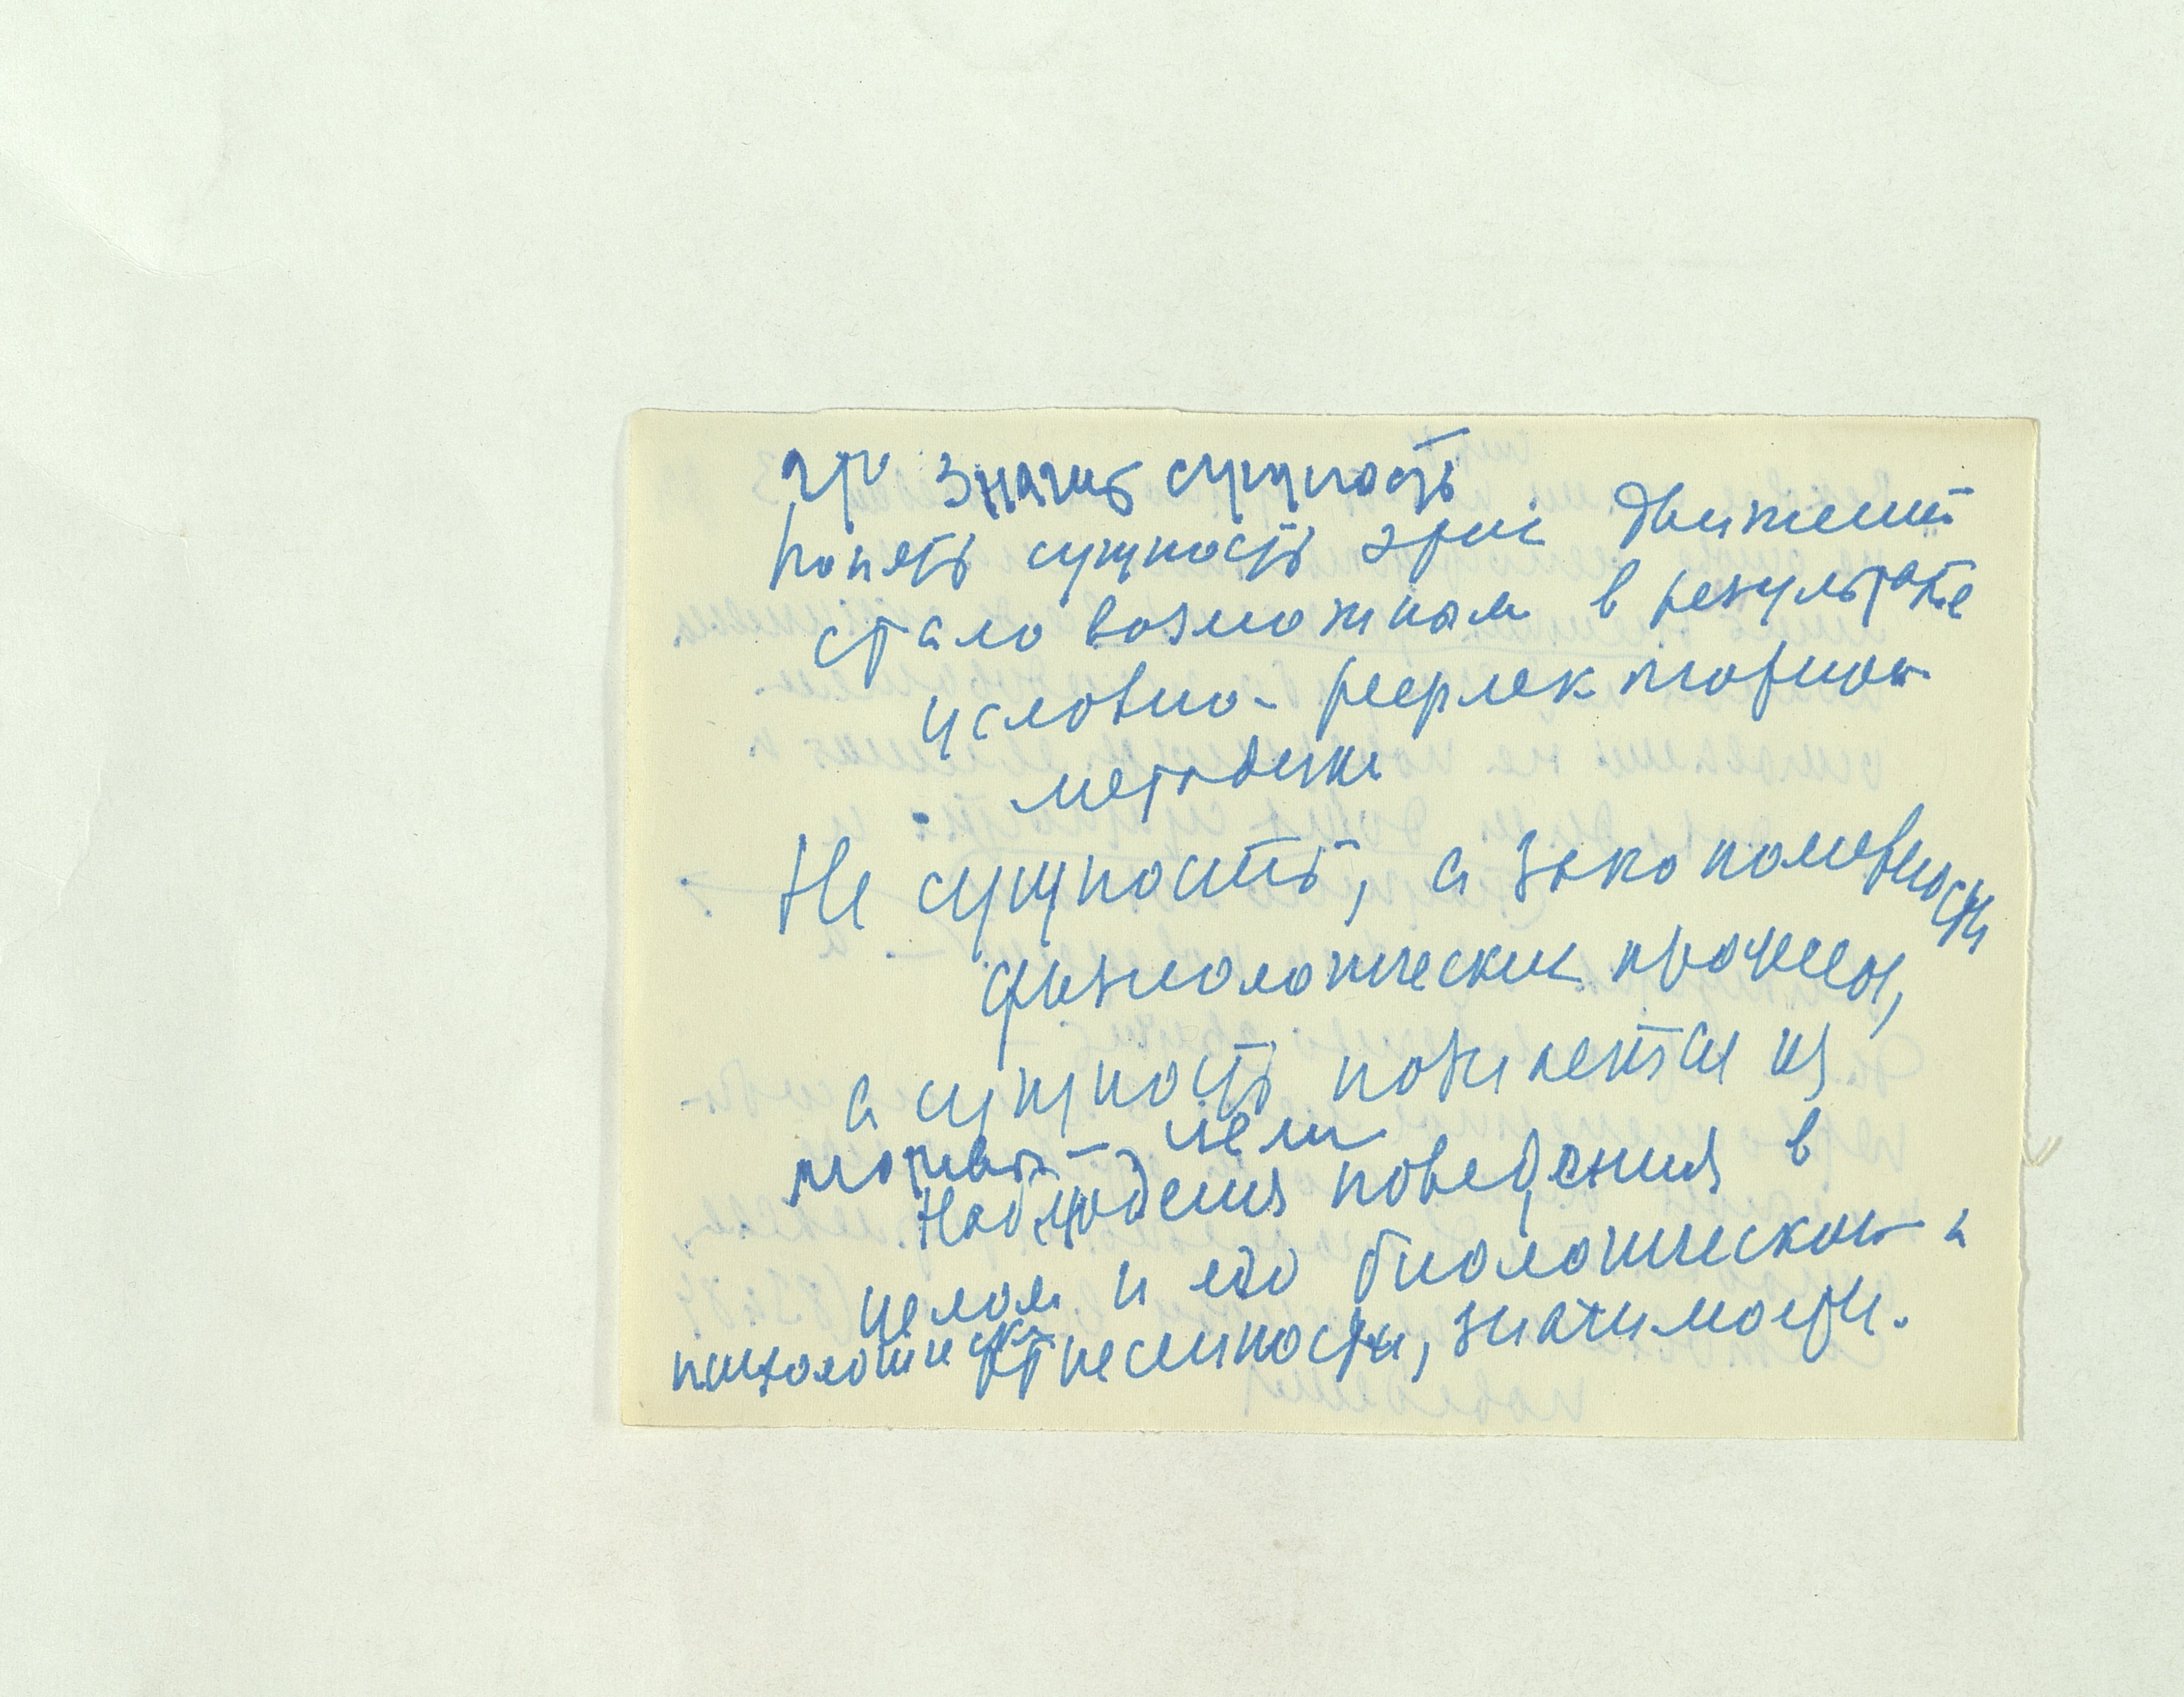 что значит сущность
Понять сущность этих движений
стало возможным в результате
условно-рефлекторной
методики
Не сущность, а закономерности
физиологических процессов,
а сущность познается из
цели
наблюдения поведения в
целом и его биологической и
психологической
значимости.